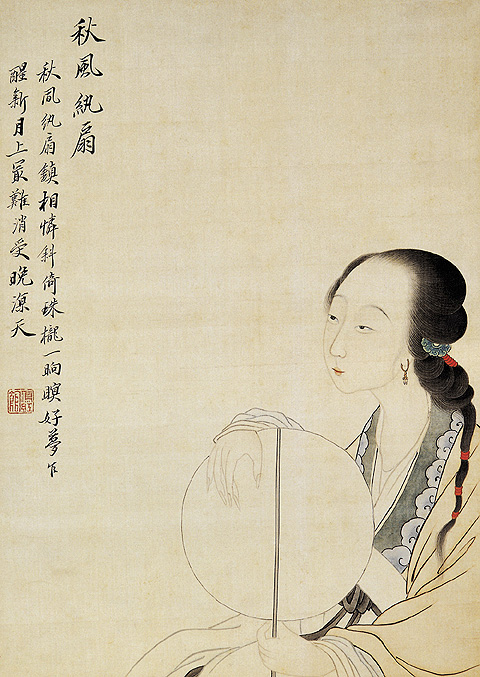 秋風紈扇
秋風紈扇鎮相憐斜倚珠櫳一晌瞑好夢乍
醒新月上最難消受晚涼天